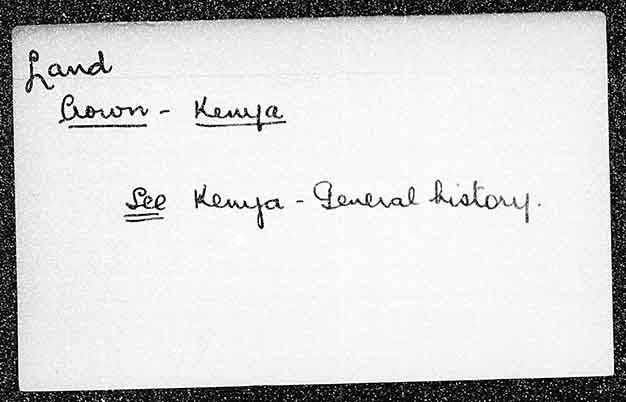 Land
Crown - Kenya
See Kenya - General history.